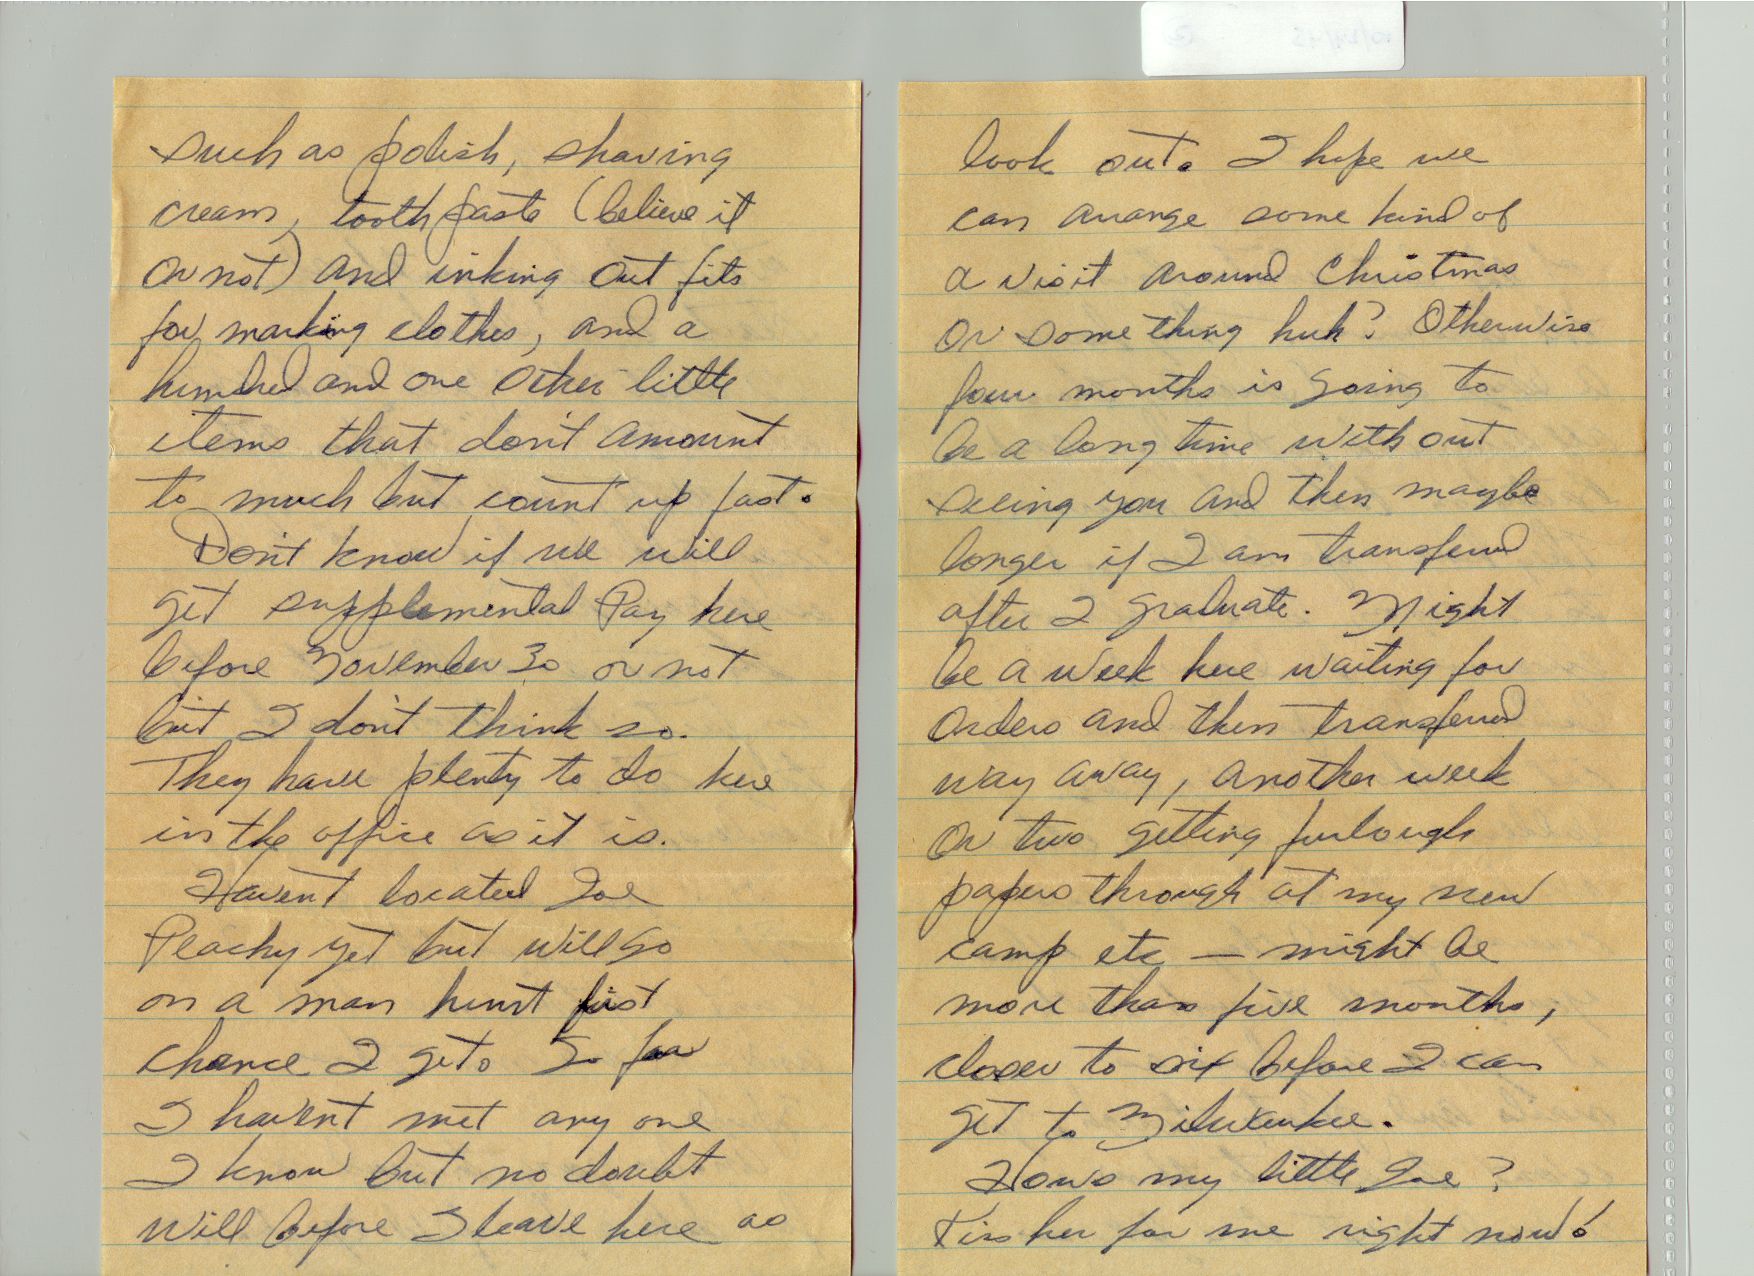 such as polish, shaving
cream, tooth paste (believe it
or not) and inking out fits
for marking clothes, and a
hundred and one other little
items that don't amount
to much but count up fast.
Don't know if we will
get supplemental Pay here
before November 30 or not
but I don't think so.
They have plenty to do here
in the office as it is.
Haven't located Joe
Peachy yet but will go
on a man hunt first
chance I get. So far
I haven't met any one
I know but no doubt
will before I leave here as
look out. I hope we
can arrange some kind of
a visit around Christmas
or something huh? Otherwise
four months is going to
be a long time without
seeing you and then maybe
longer if I am transferred
after I graduate. Might
be a week here waiting for
orders and then transferred
way away, another week
or two getting furlough
papers through at my new
camp etc — might be
more than five months,
closer to six before I can
get to Milwaukee.
Hows my little Joe?
Kiss her for me right now!